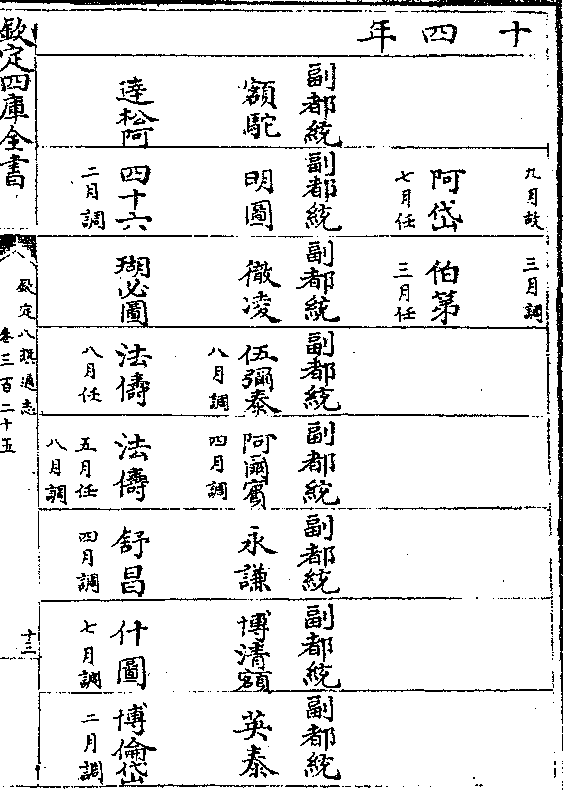 十四年
九月故
阿岱
七月任
三月調
伯第
三月任
副都統
額駝
達松阿
副都統
明圖
四十六
二月調
副都統
徹凌
瑚必圖
副都統
伍彌泰
八月調
法儔
八月任
副都統
阿爾賓
四月調
法儔
五月任
八月調
副都統
永謙
舒昌
四月調
副都統
博清額
什圖
七月調
副都統
英泰
博倫岱
二月調
欽定四庫全書
欽定八旗通志
卷三百二十五
十三